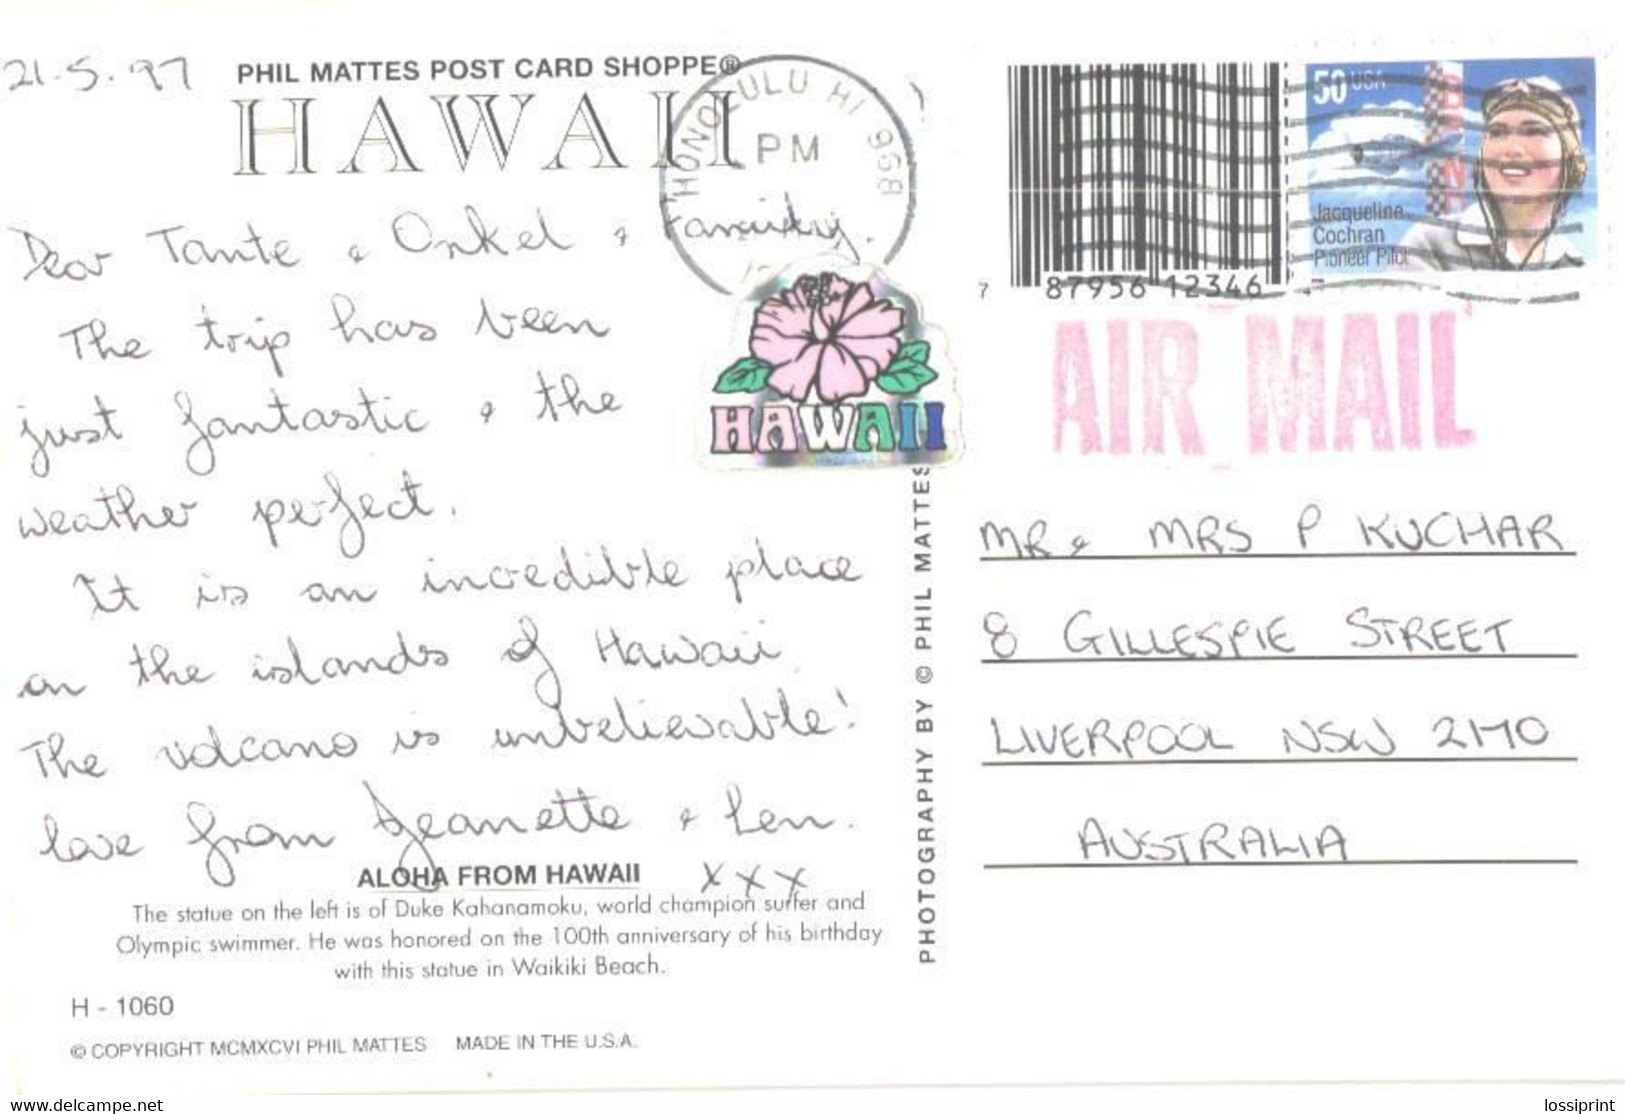 21.5.97
PHIL MATTES POST CARD SHOPPE®
HAWAII
HONOLULU HI 968
PM
Dear Tante & Onkel & Family.
The trip has been
just fantastic & the
weather perfect.
It is an incredible place
on the islands of Hawaii.
The volcano is unbelievable!
love from Jeanette & Len.
xxx
ALOHA FROM HAWAII
The statue on the left is of Duke Kahanamoku, world champion surfer and
Olympic swimmer. He was honored on the 100th anniversary of his birthday
with this statue in Waikiki Beach.
H - 1060
© COPYRIGHT MCMXCVI PHIL MATTES MADE IN THE U.S.A.
HAWAII
PHOTOGRAPHY BY © PHIL MATTES
7 87956 12346
50 USA
Jacqueline
Cochran
Pioneer Pilot
AIR MAIL
MR & MRS P KUCHAR
8 GILLESPIE STREET
LIVERPOOL NSW 2170
AUSTRALIA
www.delcampe.net
lossiprint